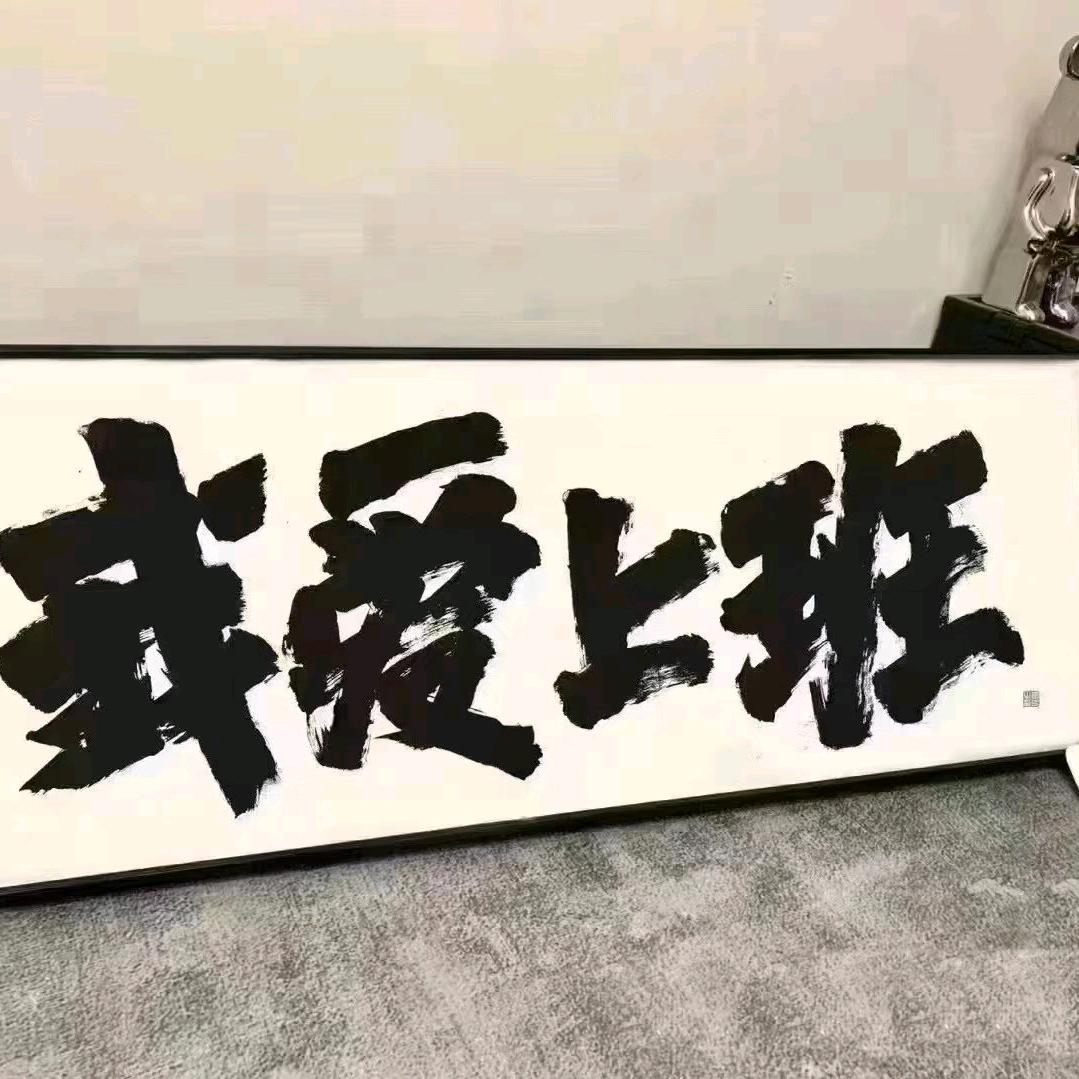 我爱上班